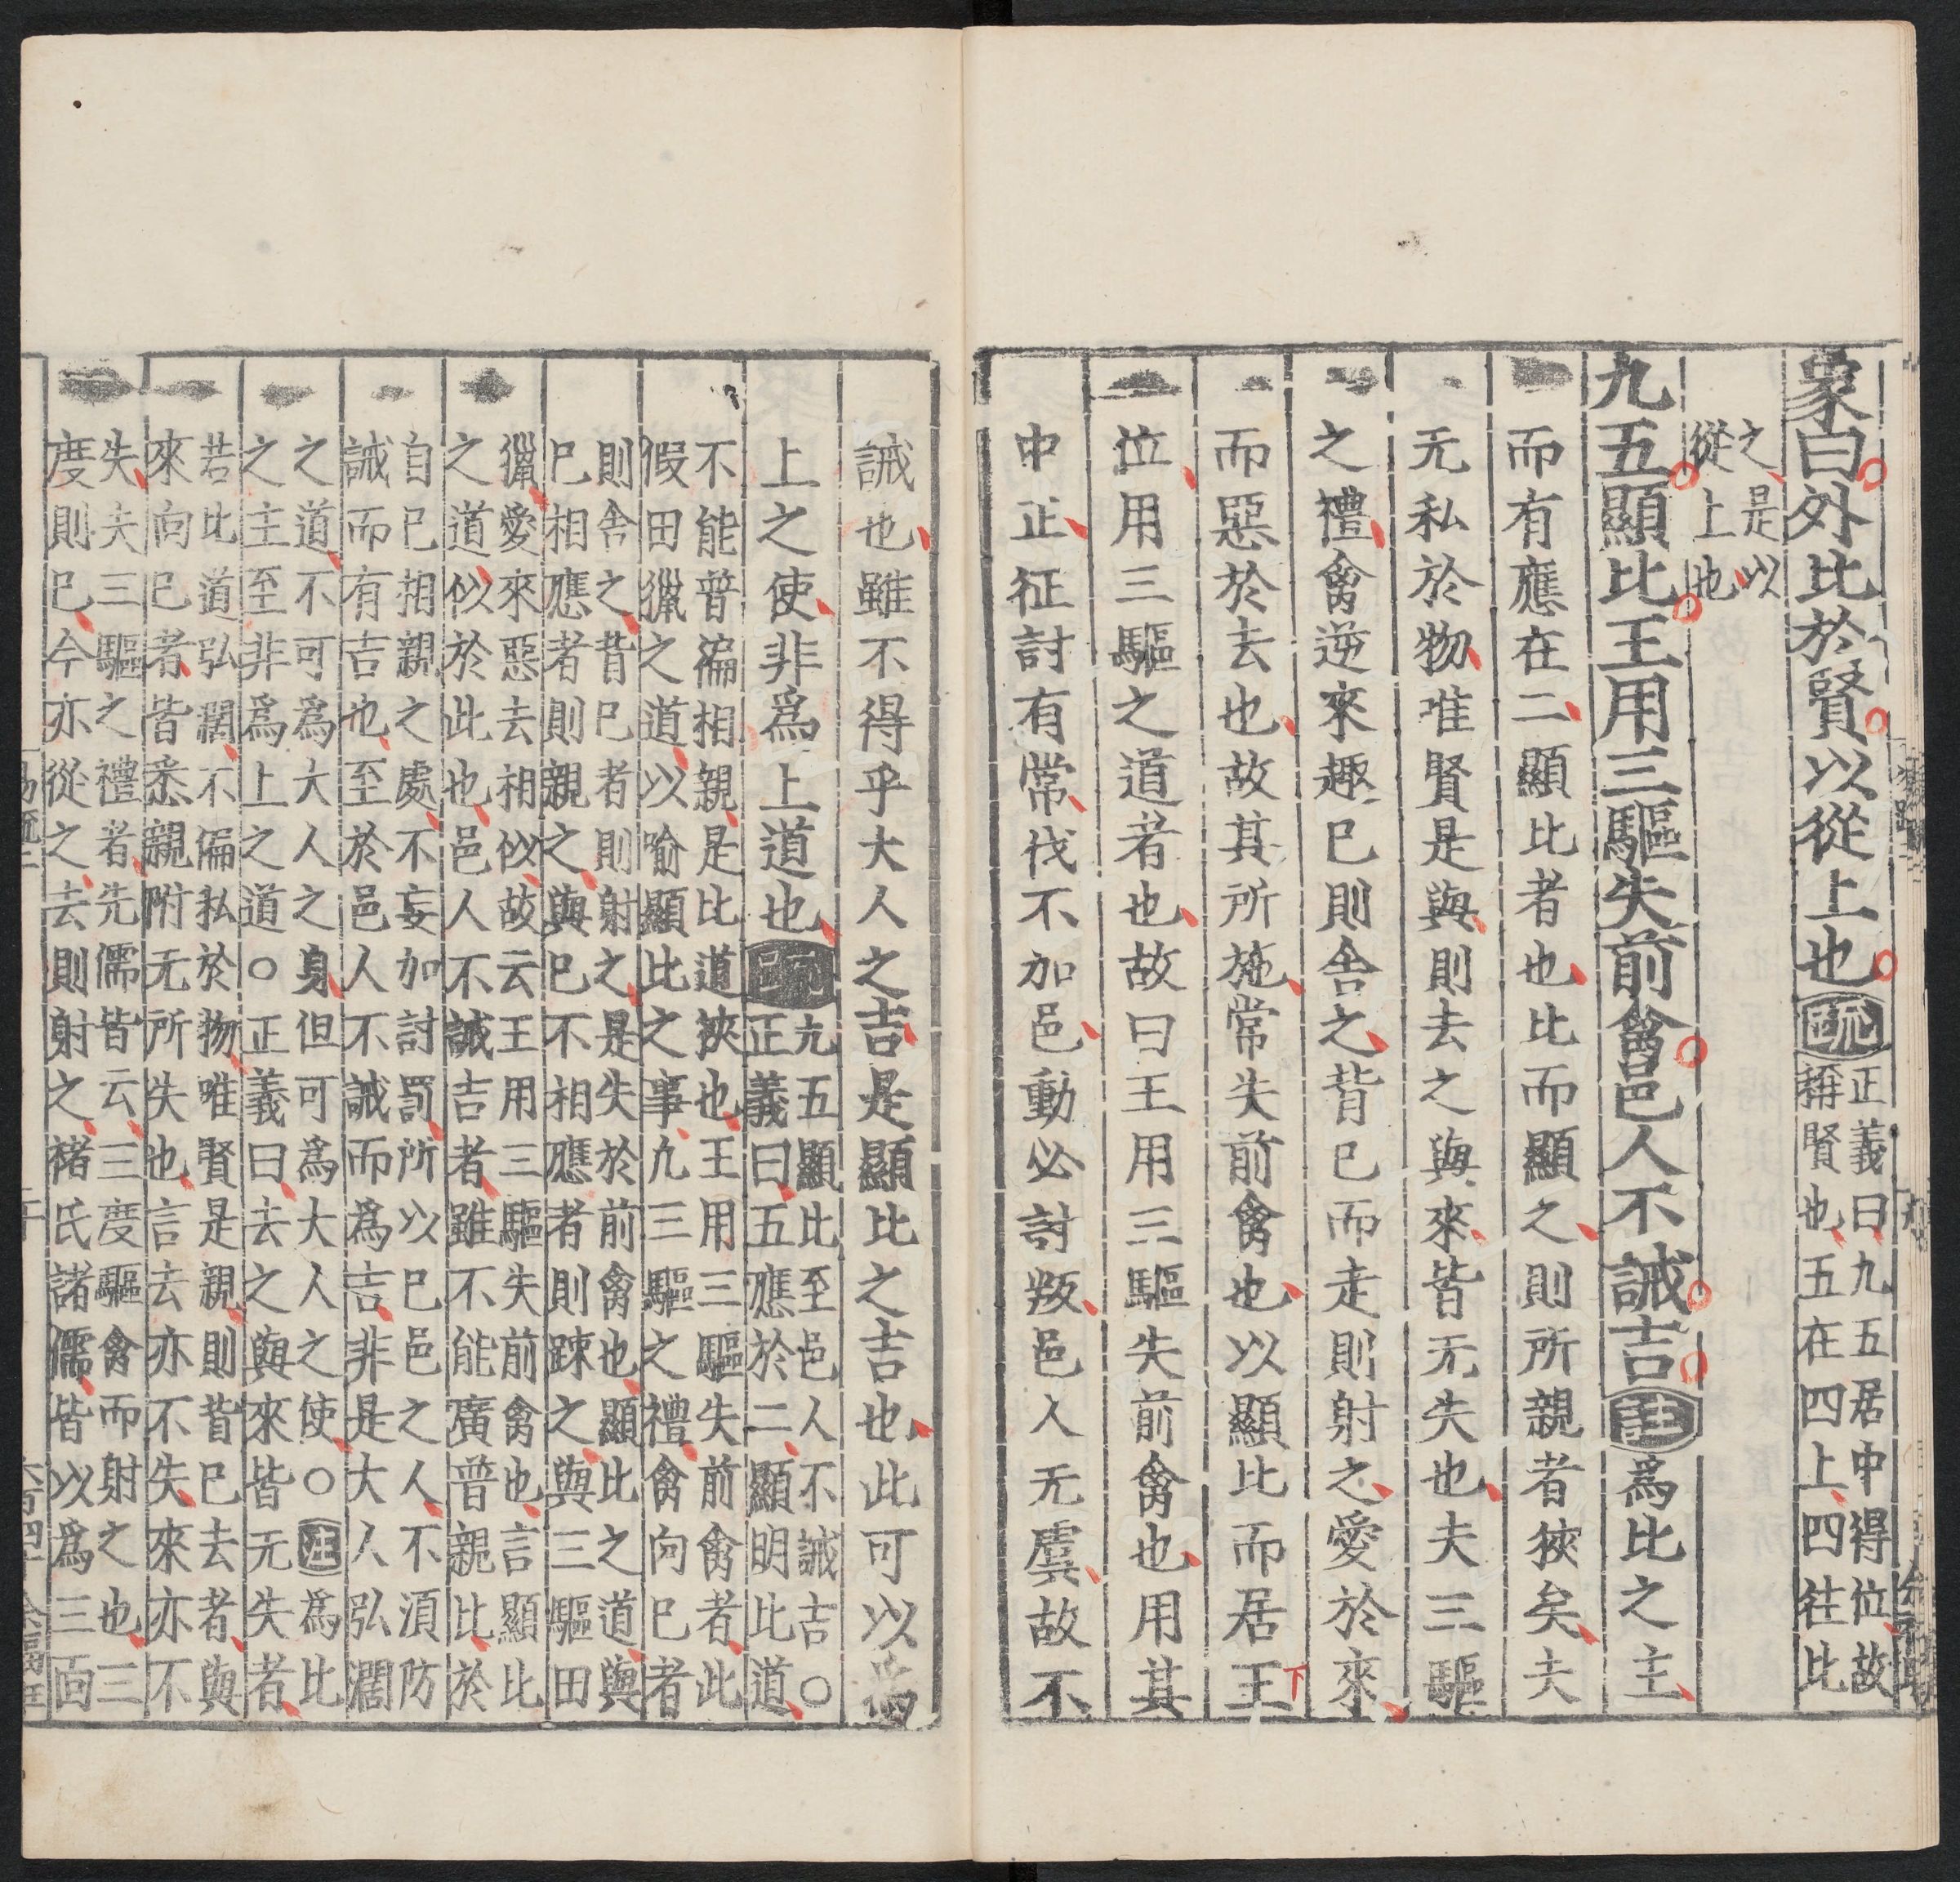 象曰外比於賢以從上也疏正義曰九五居中得位故
稱賢也五在四上四往比
之是以
從上也
九五顯比王用三驅失前禽邑人不誡吉註爲比之主
而有應在二顯比者也比而顯之則所親者狹矣夫
无私於物唯賢是與則去之與來皆无失也夫三驅
之禮禽逆來趣己則舍之背己而走則射之愛於來
而惡於去也故其所施常失前禽也以顯比而居王
下
位用三驅之道者也故曰王用三驅失前禽也用其
中正征討有常伐不加邑動必討叛邑人无虞故不
誡也雖不得乎大人之吉是顯比之吉也此可以爲
上之使非爲上道也疏九五顯比至邑人不誡吉○
正義曰五應於二顯明比道
不能普徧相親是比道狹也王用三驅失前禽者此
假田獵之道以喻顯比之事凢三驅之禮禽向巳者
則舍之背巳者則射之是失於前禽也顯比之道與
巳相應者則親之與巳不相應者則踈之與三驅田
獵愛來惡去相似故云王用三驅失前禽也言顯比
之道似於此也邑人不誡吉者雖不能廣普親比於
自巳相親之處不妄加討罰所以巳邑之人不湏防
誡而有吉也至於邑人不誡而爲吉非是大人弘濶
之道不可爲大人之身但可爲大人之使○註爲比
之主至非爲上之道○正義曰去之與來皆无失者
若比道弘濶不偏私於物唯賢是親則背巳去者與
來向巳者皆悉親附无所失也言去亦不失來亦不
失夫三驅之禮者先儒皆云三度驅禽而射之也三
度則巳今亦從之去則射之禇氏諸儒皆以爲三面